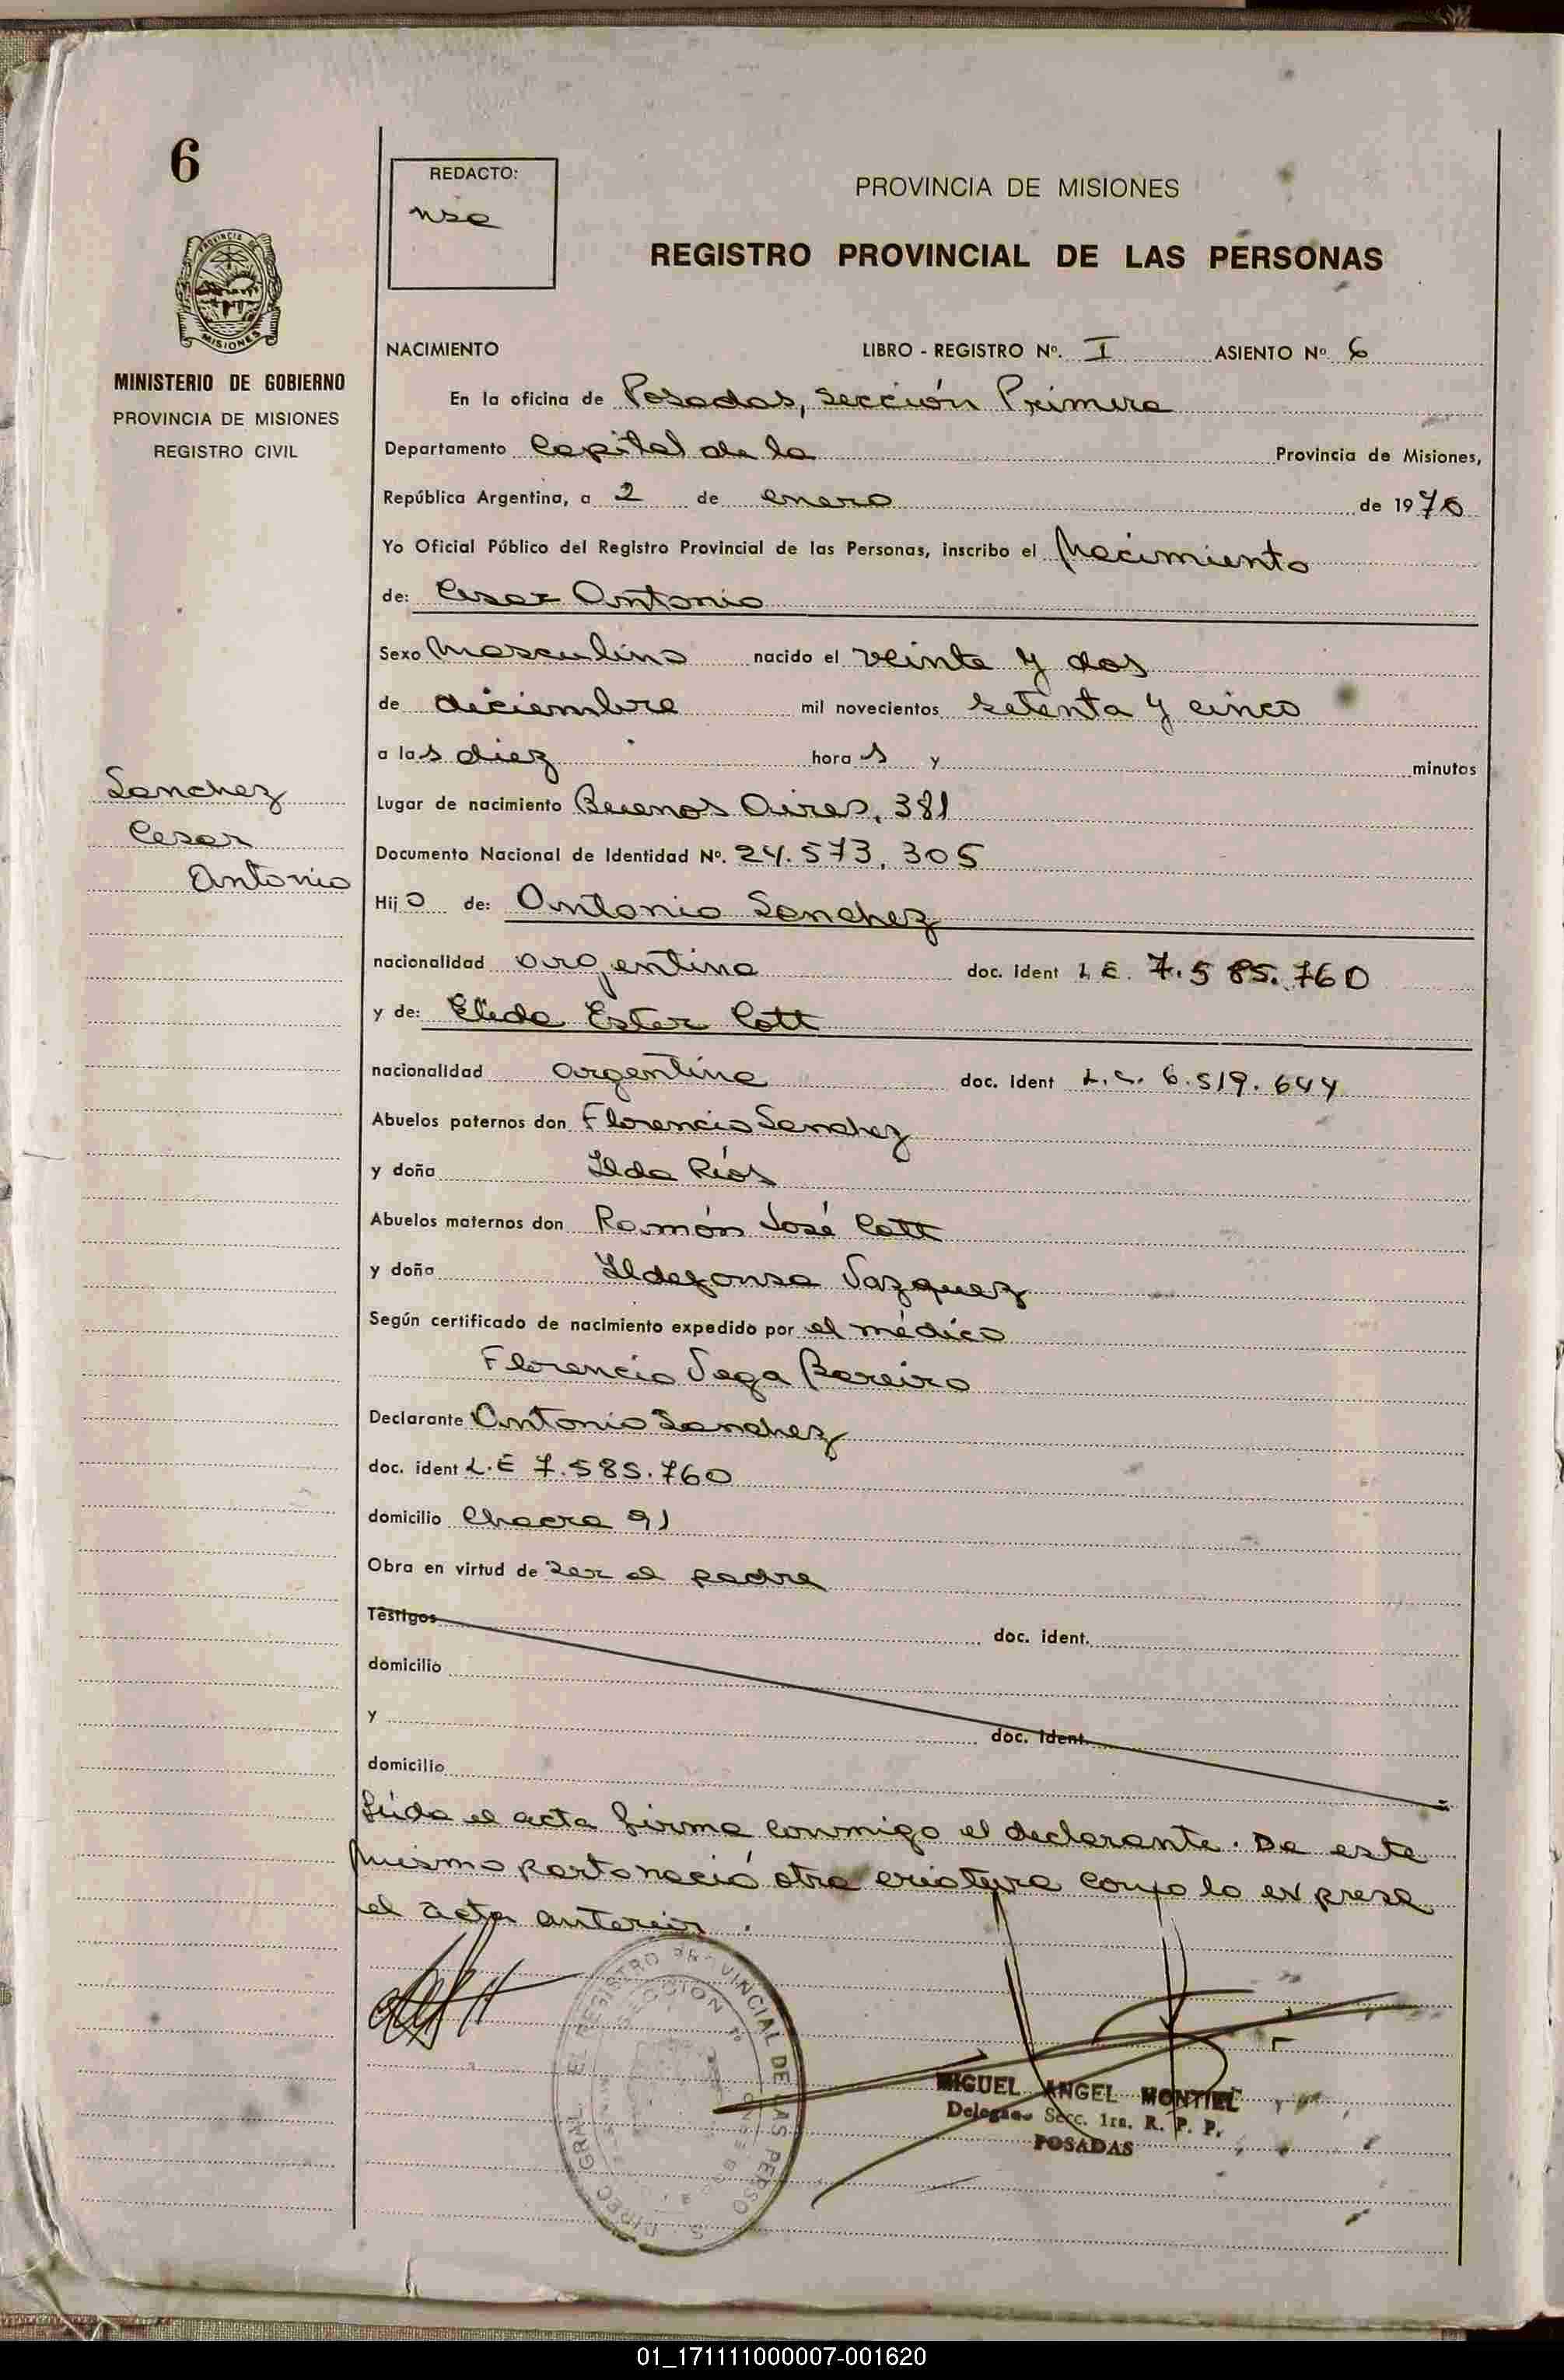 6
REDACTO:
PROVINCIA DE MISIONES
REGISTRO PROVINCIAL DE LAS PERSONAS
PROVINCIA DE
MISIONES
MINISTERIO DE GOBIERNO
PROVINCIA DE MISIONES
REGISTRO CIVIL
NACIMIENTO LIBRO - REGISTRO Nº. I ASIENTO Nº 6
En la oficina de Posadas, sección Primera
Departamento Capital de la Provincia de Misiones,
República Argentina, a 2 de enero de 1976
Yo Oficial Público del Registro Provincial de las Personas, inscribo el Nacimiento
de: Cesar Antonio
Sexo Masculino nacido el veinte y dos
de diciembre mil novecientos setenta y cinco
a las diez horas y minutos
Sanchez
Cesar
Antonio
Lugar de nacimiento Buenos Aires, 381
Documento Nacional de Identidad Nº. 24.573.305
Hijo de: Antonio Sanchez
nacionalidad argentina doc. ident L E. 7.585.760
y de: Elida Ester Cott
nacionalidad argentina doc. ident L.C. 6.519.644
Abuelos paternos don Florencio Sanchez
y doña Ilda Ríos
Abuelos maternos don Ramón José Cott
y doña Ildefonsa Vazquez
Según certificado de nacimiento expedido por el médico
Florencio Vega Bareiro
Declarante Antonio Sanchez
doc. ident L.E 7.585.760
domicilio Chacra 91
Obra en virtud de ser el padre
Testigos doc. ident.
domicilio
y doc. ident.
domicilio
Leída el acta firma conmigo el declarante. De este
mismo parto nació otra criatura como lo expresa
el acta anterior.
REGISTRO PROVINCIAL DE LAS PERSO
SECCION 1º
MIGUEL ANGEL MONTIEL
Delegado Secc. 1ra. R. P. P.
POSADAS
01_171111000007-001620